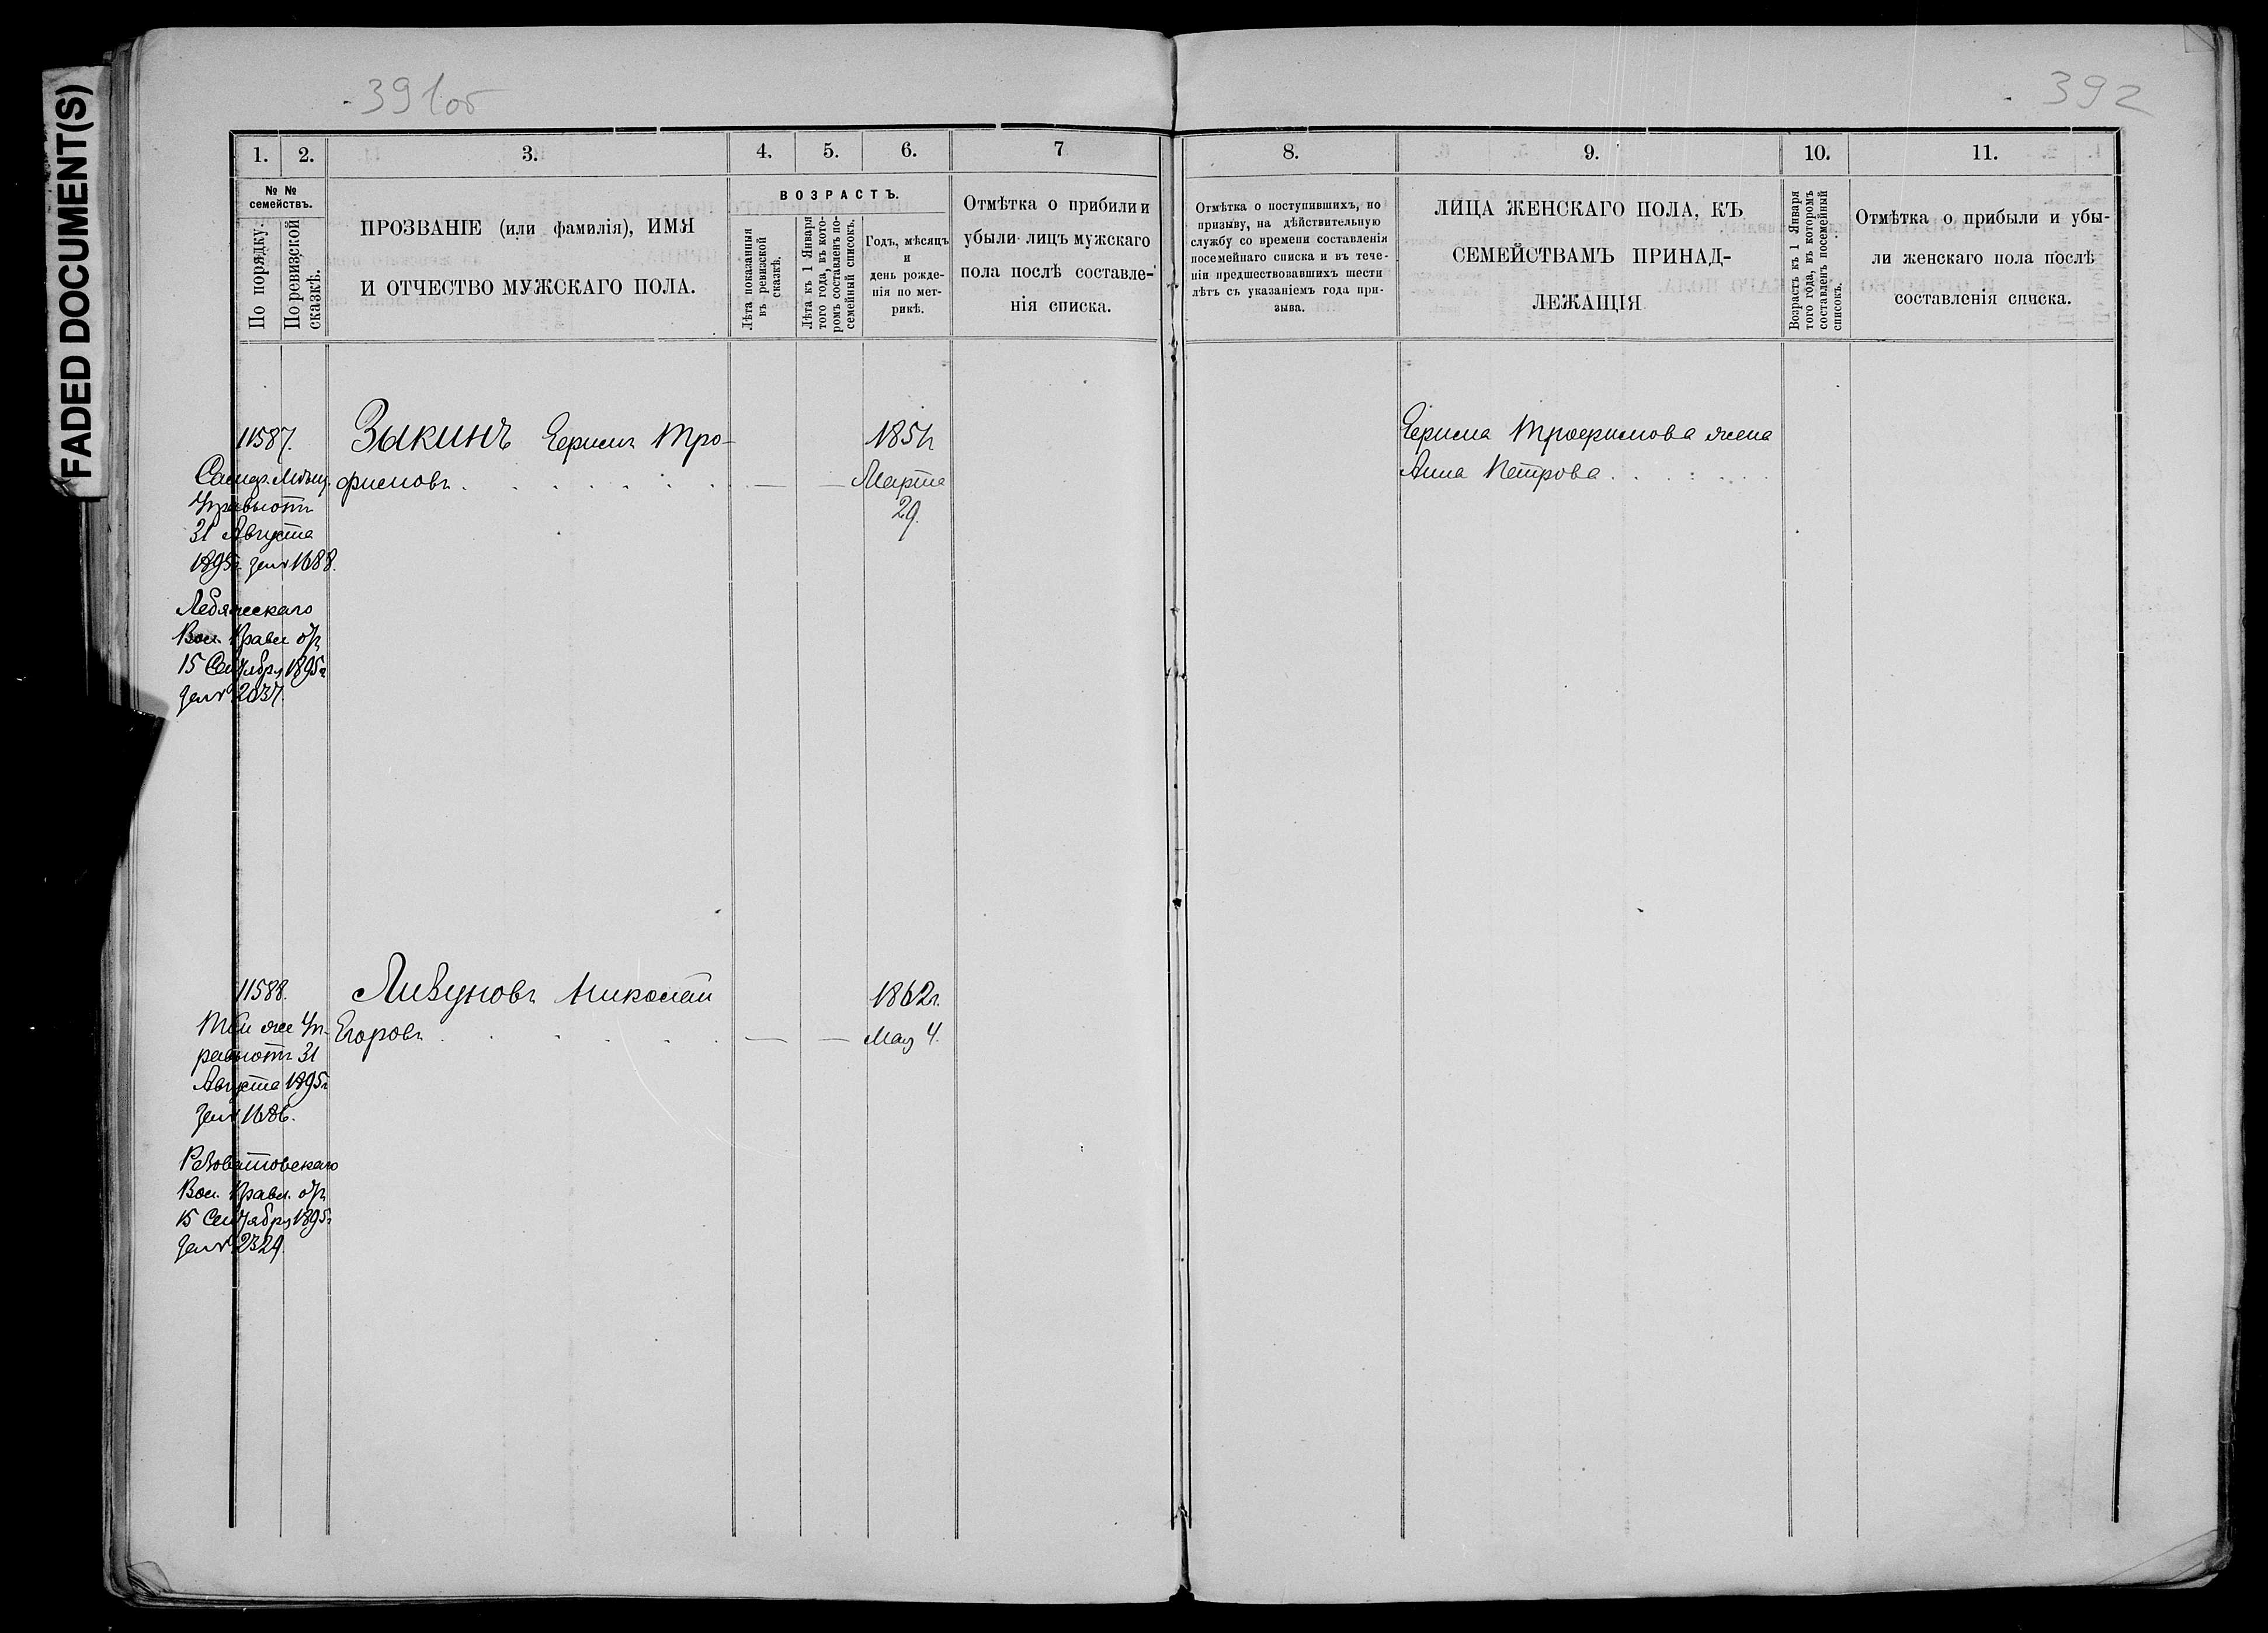 FADED DOCUMENT(S)
391об
392
1. 2. 3. 4. 5. 6. 7
8. 9. 10. 11.
№ №
семействъ.
По порядку.
По ревизской
сказкѣ.
ПРОЗВАНІЕ (или фамилія), ИМЯ
И ОТЧЕСТВО МУЖСКАГО ПОЛА.
ВОЗРАСТЪ.
Лѣта показанныя
въ ревизской
сказкѣ.
Лѣта къ 1 Января
того года, въ кото-
ромъ составленъ по-
семейный списокъ.
Годъ, мѣсяцъ
и
день рожде-
нія по мет-
рикѣ.
Отмѣтка о прибыли и
убыли лицъ мужскаго
пола послѣ составле-
нія списка.
Отмѣтка о поступившихъ, по
призыву, на дѣйствительную
службу со времени составленія
посемейнаго списка и въ тече-
ніи предшествовавшихъ шести
лѣтъ съ указаніемъ года при-
зыва.
ЛИЦА ЖЕНСКАГО ПОЛА, КЪ
СЕМЕЙСТВАМЪ ПРИНАД-
ЛЕЖАЩІЯ
Возрастъ къ 1 Января
того года, въ которомъ
составленъ посемейный
списокъ.
Отмѣтка о прибыли и убы-
ли женскаго пола послѣ
составленія списка.
11587.
Зыкинъ Ефимъ Тро-
фимовъ
1854
Марта
29.
Самар. Мѣщ.
Управы отъ
31 Августа
1895г за № 1688.
Лебяжскаго
Вол. Правл отъ
15 Сентября 1895г
за № 2037.
Ефима Трофимова жена
Анна Петрова
11588.
Ливуновъ Николай
Егоровъ
1862г.
Мая 4.
Той же Уп-
равы отъ 31
Августа 1895г
за № 1686.
Вол. Правл. отъ
15 Сентября 1895г
за № 2329.